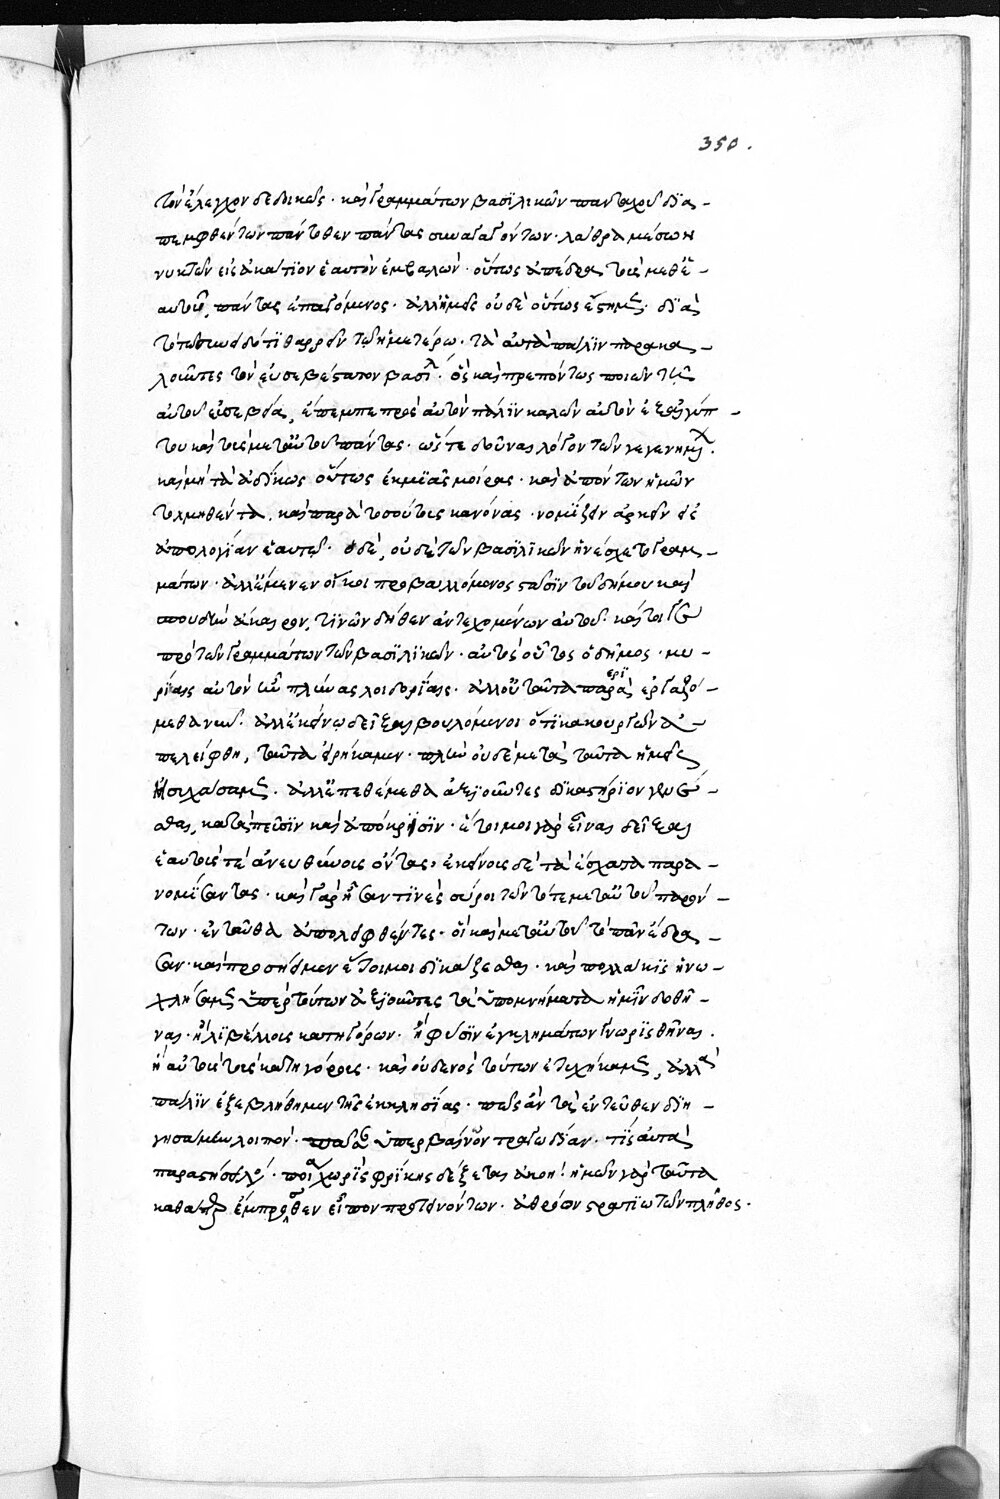 350.
τὸν ἔλεγχον δεδοικὼς· καὶ γραμμάτων βασϊλικῶν πανταχοῦ δϊα-
πεμφθέντων πάντοθεν πάντας συναγαγόντων· λάθρα μέσων
νυκτῶν εἰς ἀκάτϊον ἑαυτὸν ἐμβαλὼν· οὕτως ἀπέδρα τοὺς μεθ' ἑ-
αυτοῦ πάντας ἐπαγόμενος· ἀλλ' ἡμεῖς οὐδὲ οὕτως ἔστημεν· δϊὰ
τὸ τῷ συνειδότϊ θαρρεῖν τῷ ἡμετέρῳ· τὰ αὐτὰ πάλϊν παρακα-
λοῦντες τὸν εὐσεβέστατον βασϊλ· ὃς καὶ πρεπόντως ποιῶν τῇ
αὐτοῦ εὐσεβείᾳ, ἔπεμπε πρὸς αὐτὸν πάλϊν καλῶν αὐτὸν ἐξ αἰγύπ-
του καὶ τοὺς μετ' αὐτοῦ πάντας· ὥστε δοῦναι λόγον τῶν γεγενημέν·
καὶ μὴ τὰ ἀδίκως οὕτως ἐκ μϊᾶς μοίρας· καὶ ἀπόντων ἡμῶν
τολμηθέντα, καὶ παρὰ τοσούτους κανόνας· νομίζειν ἀρκεῖν εἰς
ἀπολογίαν ἑαυτῷ· ὁ δὲ, οὐδὲ τῶν βασϊλϊκῶν ἠνέσχετο γραμ-
μάτων· ἀλλ' ἔμενεν οἴκοι προβαλλόμενος στάσϊν τοῦ δήμου καὶ
σπουδὴν ἄκαιρον, τϊνῶν δῆθεν ἀντεχομένων αὐτοῦ· καίτοιγε
πρὸ τῶν γραμμάτων τῶν βασϊλϊκῶν· αὐτὸς οὗτος ὁ δῆμος· μυ-
ρίαις αὐτὸν ἦν πλύνας λοιδορίαις· ἀλλ' οὐ ταῦτα παρὰ, ερϊ ἐργαζό-
μεθα νῦν· ἀλλ' ἐκεῖνο δεῖξαι βουλόμενοι ὅτϊ κακουργῶν ἀ-
πελείφθη, ταῦτα εἰρήκαμεν· πλὴν οὐδὲ μετὰ ταῦτα ἡμεῖς
ἡσυχάσαμεν· ἀλλ' ἐπεθέμεθα ἀξϊοῦντες δικαστήριον γενέ-
σθαι, κατὰ πεῦσϊν καὶ ἀπόκρϊσϊν· ἕτοιμοι γὰρ εἶναι δεῖξαι
ἑαυτούς τε ἀνευθύνους ὄντας· ἐκείνους δὲ τὰ ἔσχατα παρα-
νομήσαντας· καὶ γὰρ ἦσαν τϊνὲς σύροι τῶν τότε μετ' αὐτοῦ παρόν-
των· ἐνταῦθα ἀπολειφθέντες· οἳ καὶ μετ' αὐτοῦ τὸ πᾶν ἔδρα-
σαν· καὶ προσῄειμεν ἕτοιμοι δϊκάζεσθαι· καὶ πολλάκϊς ἠνω-
χλήσαμεν ὑπὲρ τούτων ἀξϊοῦντες τὰ ὑπομνήματα ἡμῖν δοθῆ-
ναι· ἢ λϊβέλλους κατηγόρων· ἢ φύσϊν ἐγκλημάτων γνωρϊσθῆναι·
ἢ αὐτοὺς τοὺς κατηγόρους· καὶ οὐδενὸς τούτων ἐτυχήκαμεν, ἀλλὰ
πάλϊν ἐξεβλήθημεν τῆς ἐκκλησίας· πῶς ἂν τὰ ἐντεῦθεν δϊη-
γησαίμην λοιπὸν· πᾶσαν ὑπερβαῖνον τραγωδίαν· τίς αὐτὰ
παραστήσει λόγος· ποία χωρὶς φρίκης δέξεται ἀκοὴ! ἡμῶν γὰρ ταῦτα
καθάπερ ἔμπροσθεν εἶπον προτεινόντων· ἀθρόον στρατϊωτῶν πλῆθος·